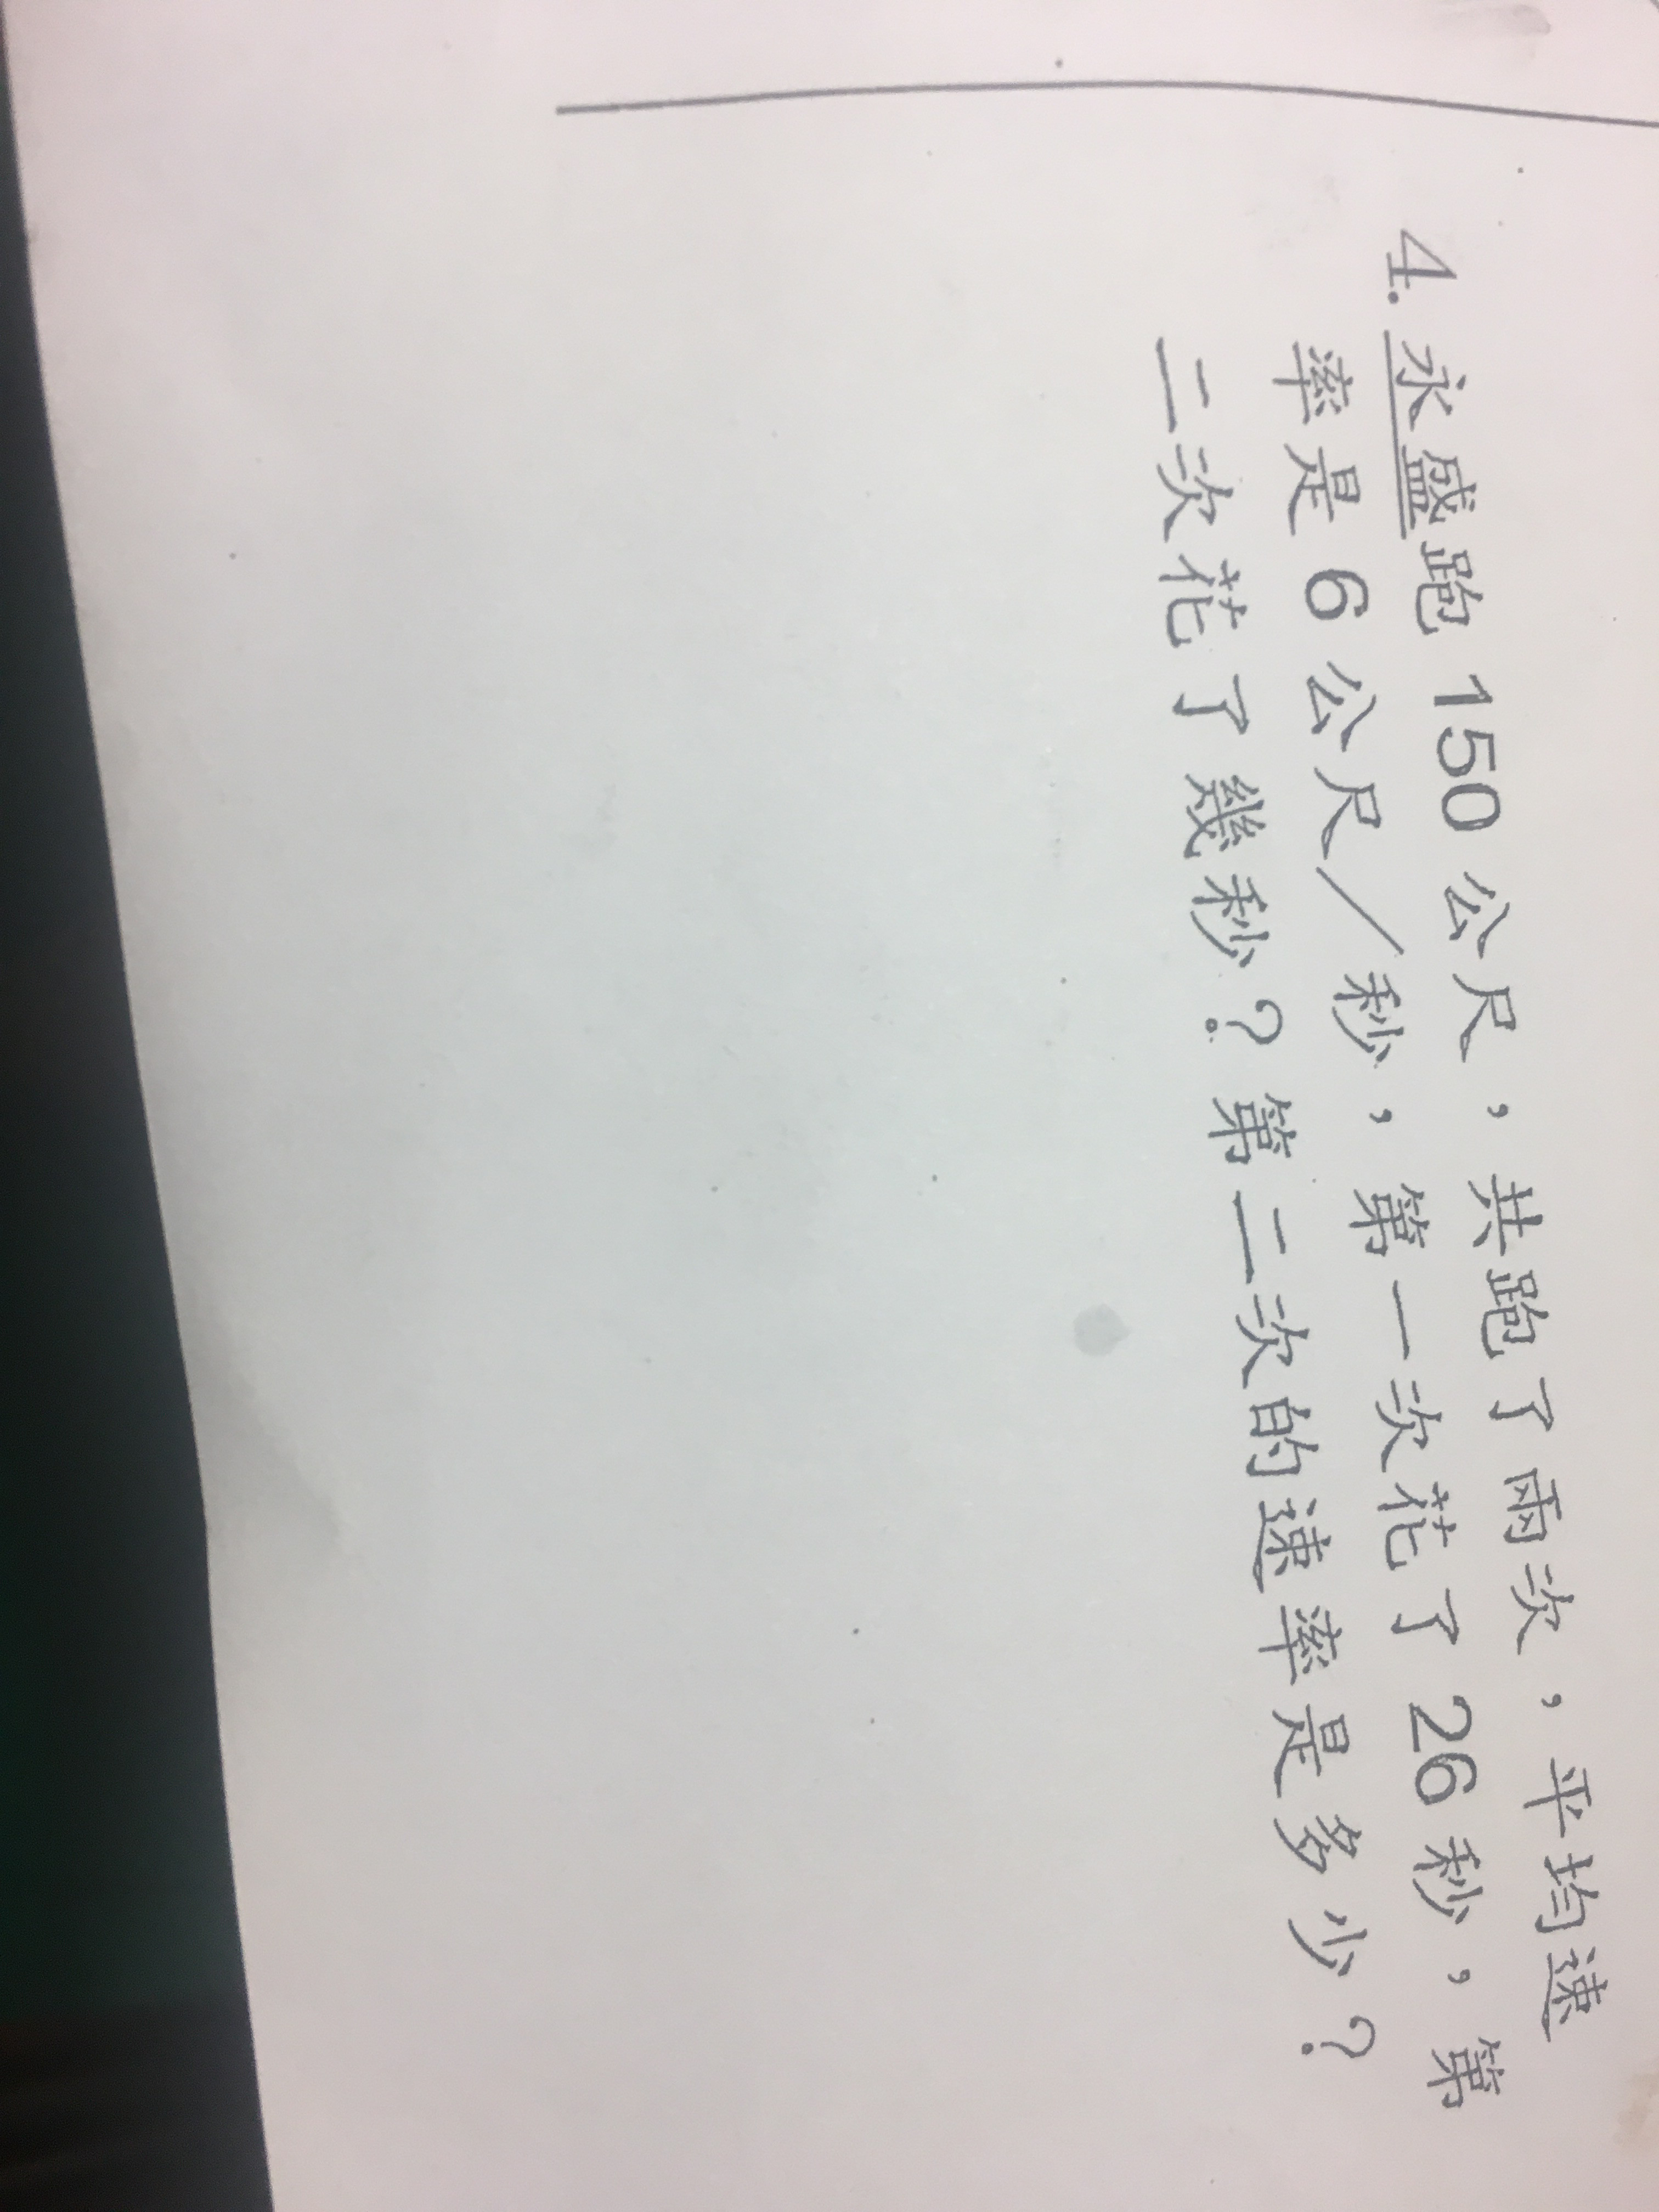 4. 永盛跑 150 公尺，共跑了兩次，平均速
率是 6 公尺／秒，第一次花了 26 秒，第
二次花了幾秒？第二次的速率是多少？